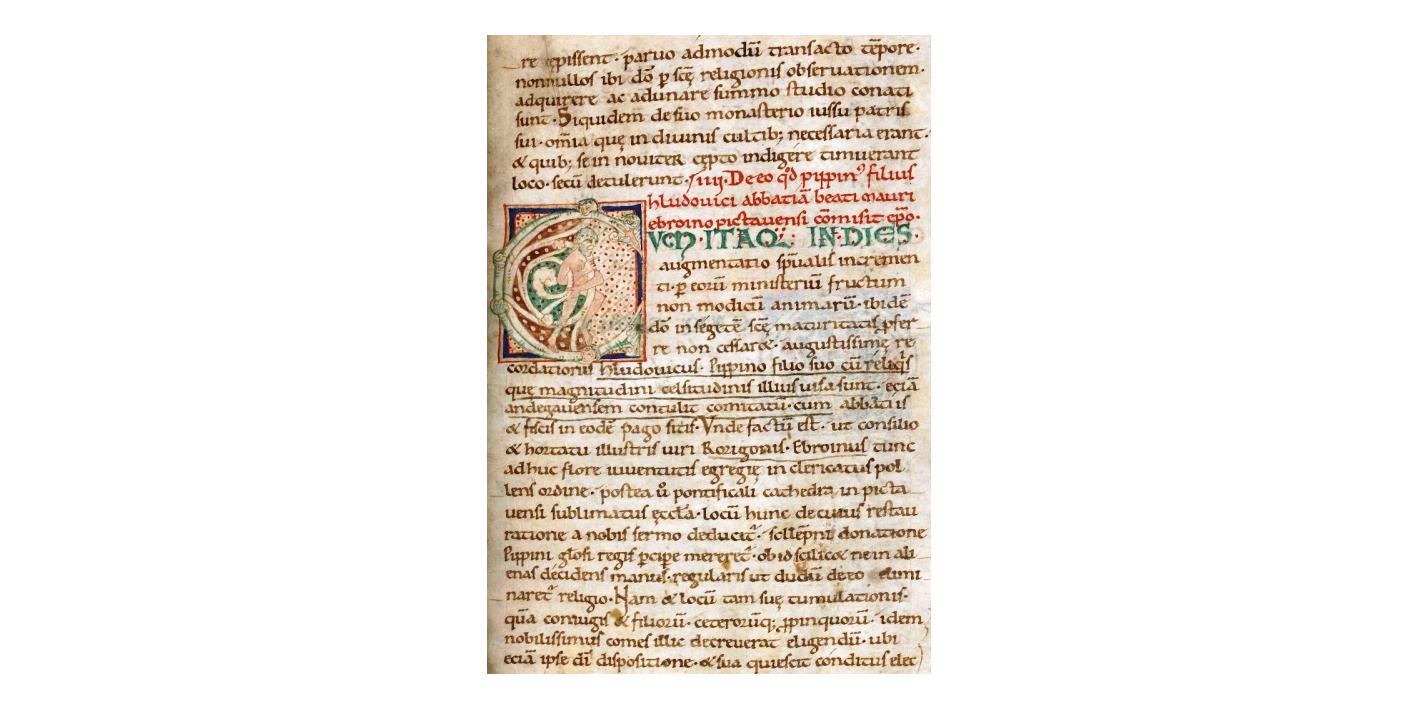 re cepissent · paruo admodū transacto tēpore ·
nonnullos ibi dō p scę religionis obseruationem ·
adquirere ac adunare summo studio conati
sunt · Siquidem de suo monasterio iussu patris
sui · om̄ia quę in diuinis cultib; necessaria erant ·
& quib; se in nouiter cępto indigere timuerant
loco · secū detulerunt · iiij · De eo qd̊ pippinꝰ filius
hludouici abbatiā beati mauri
ebroino pictauensi cōmisit ep̄o ·
CVM · ITAQ; IN DIES ·
augmentatio sp̄ualis incremen
ti · p eorū ministeriū fructum
non modicū animarū · ibidē
dō in segetē scę maturitatis pfer
re non cessar& · augustissimę re
cordationis hludouicus · Pippino filio suo cū reliqis
que magnitudini celsitudinis illius uisa sunt · eciā
andegauensem contulit comitatū · cum abbatiis
& fiscis in eodē pago sitis · Vnde factū est · ut consilio
& hortatu illustris uiri Rorigonis · Ebroinus tunc
adhuc flore iuuentutis egregię in clericatus pol
lens ordine · postea ů pontificali cathedra in picta
uensi sublimatus ęccła · locū hunc de cuius restau
ratione a nobis sermo deducit᷑ · sollēpni donatione
Pippini gl̄osi regis pcipe mereret᷑ · ob id scilic& ne in ali
enas decidens manus · regularis ut dudū de eo elimi
naret᷑ religio · Nam & locū tam suę tumulationis ·
quā coniugis & filiorū · ceterorūq; ꝓpinquorū · idem
nobilissimus comes illic decreuerat eligendū · ubi
eciā ipse dī dispositione · & sua quiescit conditus elec